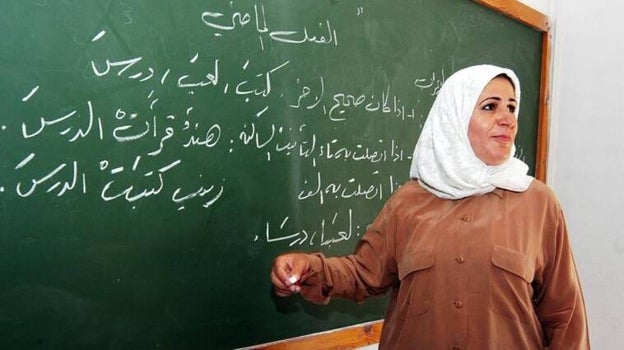 الفعل الماضي
- اذا كان صحيح الآخر كتبَ ، لعبَ ، درسَ
- اذا اتصلت به تاء التأنيث الساكنة : هندٌ قرأتْ الدرسَ .
زينب كتبتْ الدرسَ .
اذا اتصلت به الف
: لعبا ، درسا